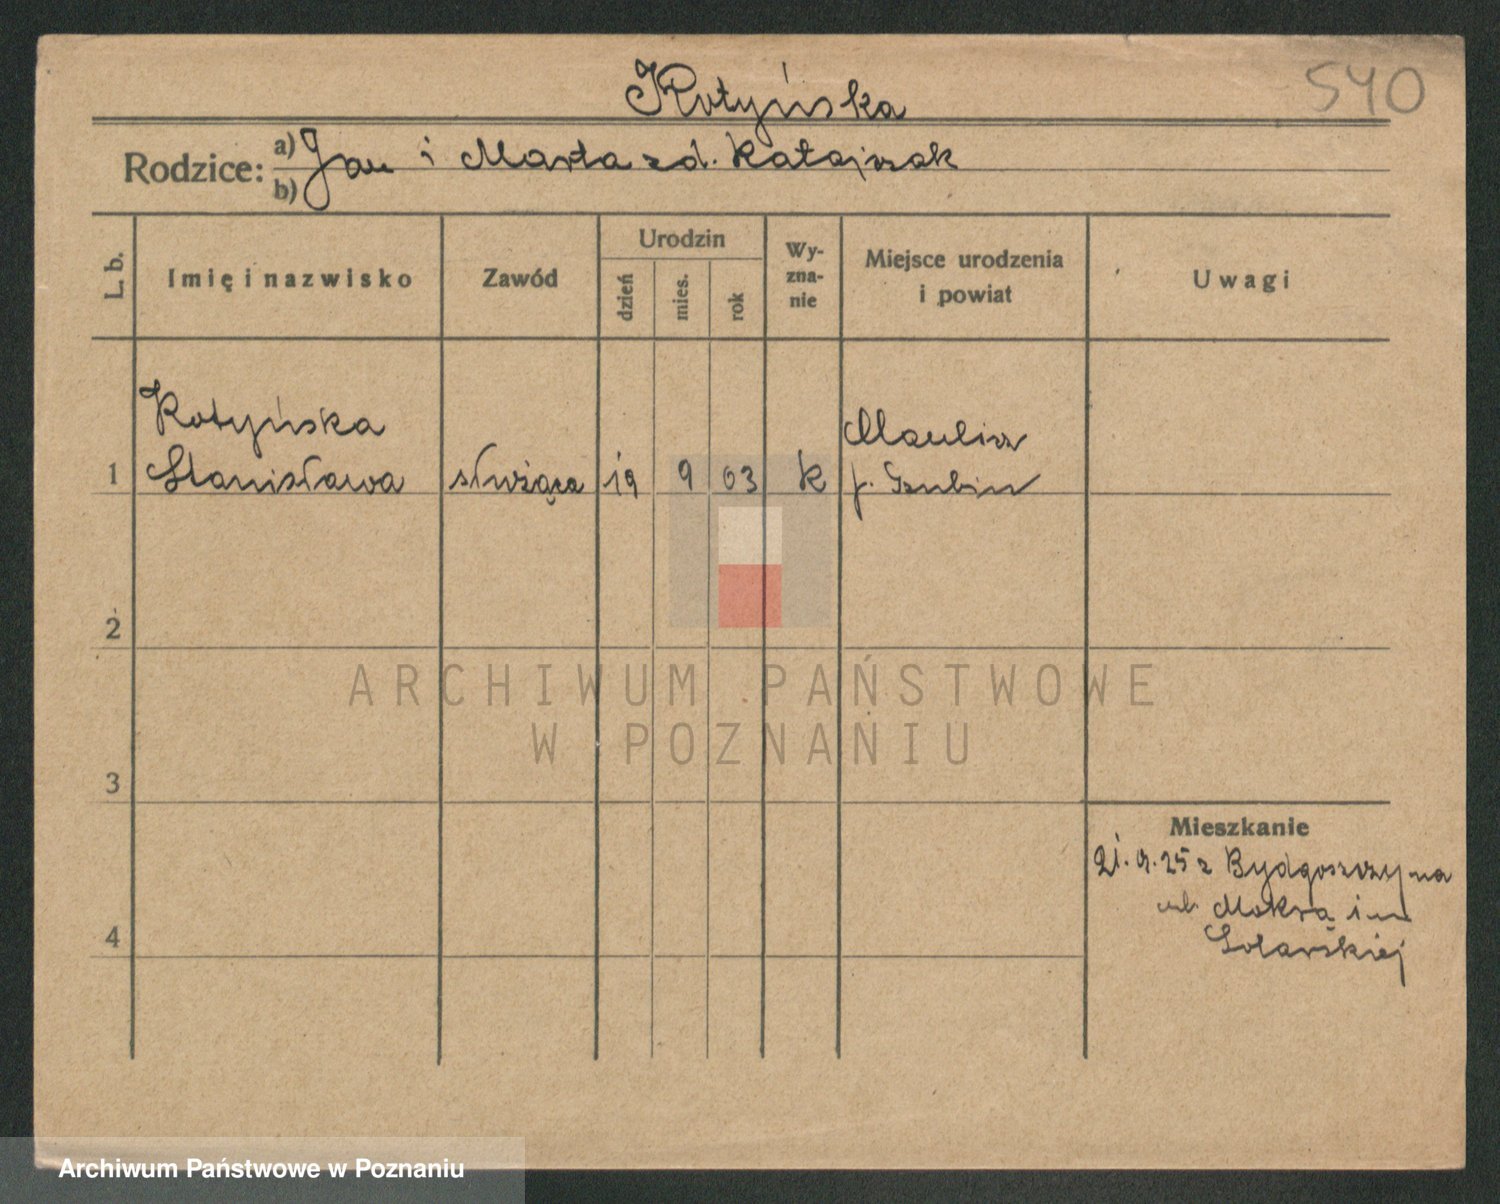 540
Kotyńska
Rodzice: a) Jan i Marta z d. Katajczak
b)
L. b.
Imię i nazwisko
Zawód
Urodzin
dzień
mies.
rok
Wy-
zna-
nie
Miejsce urodzenia
i powiat
Uwagi
Kotyńska
1 Stanisława służąca 19 9 03 k
p. Szubin
2
3
4
Mieszkanie
21. 9. 25 z Bydgoszczy na
ul. Mokra
ARCHIWUM PAŃSTWOWE
W POZNANIU
Archiwum Państwowe w Poznaniu